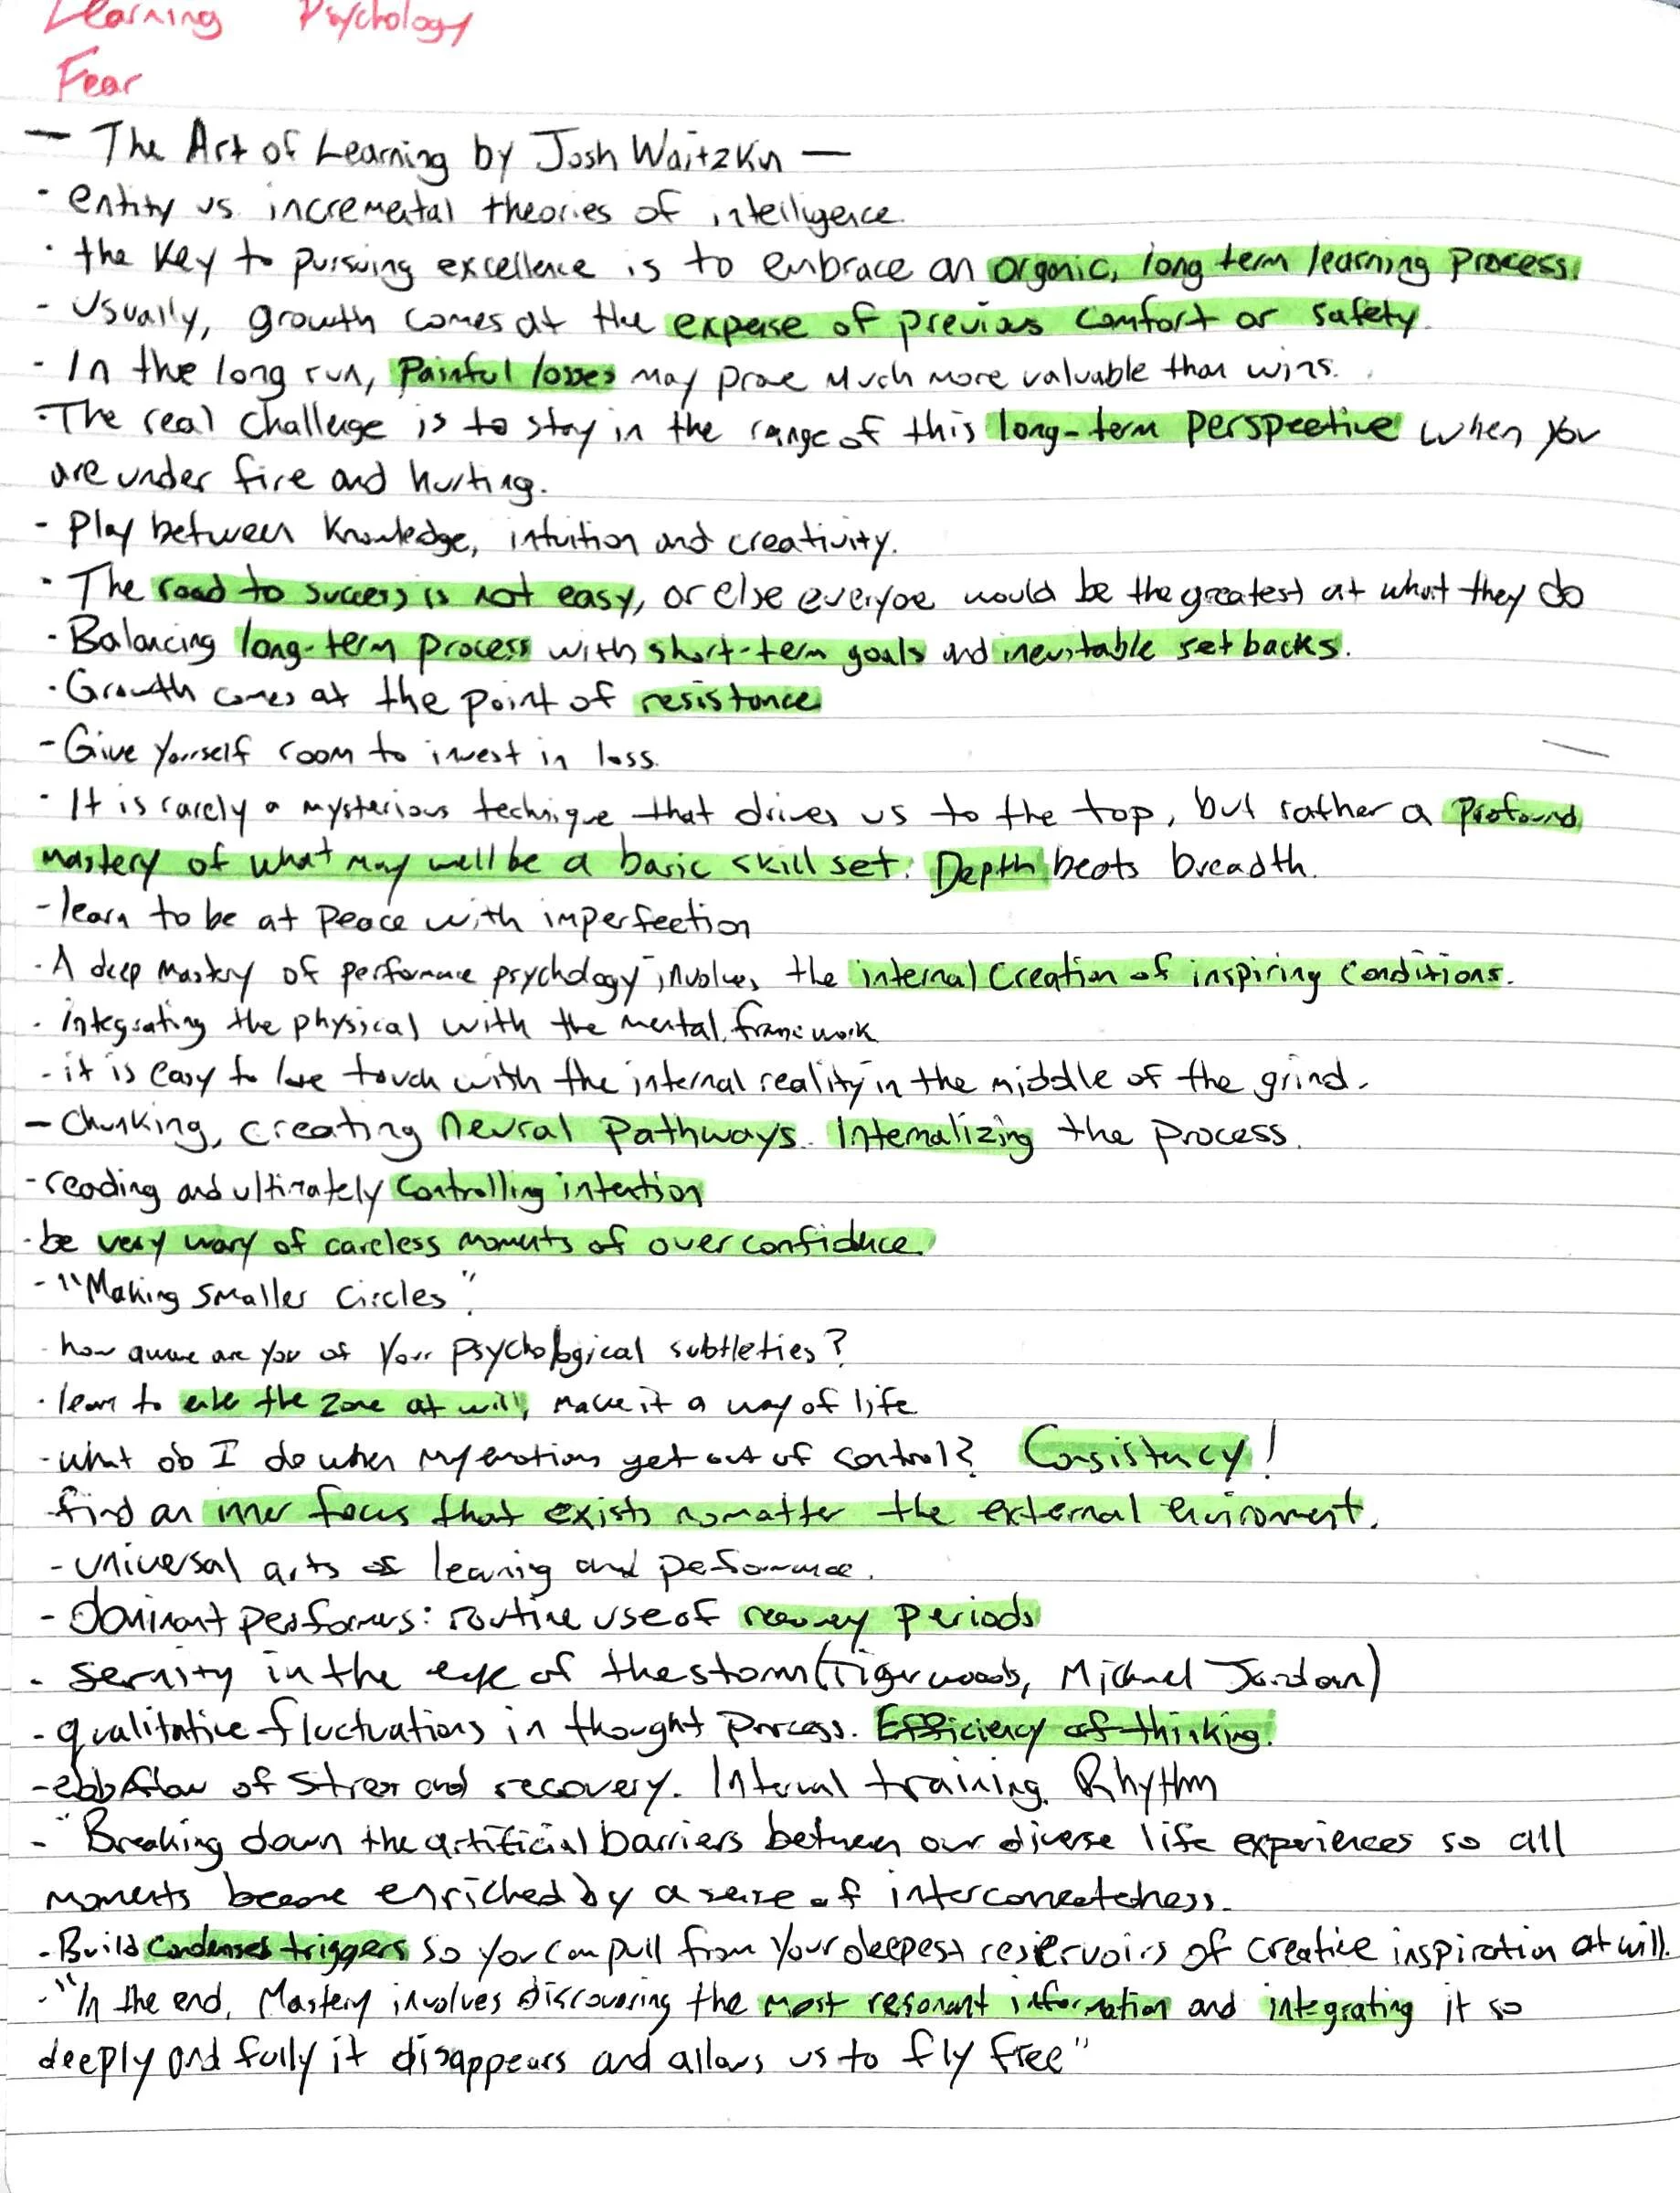 Learning Psychology
Fear
— The Art of Learning by Josh Waitzkin —
· entity vs. incremental theories of intelligence.
· the key to pursuing excellence is to embrace an organic, long term learning process.
- Usually, growth comes at the expense of previous comfort or safety.
- In the long run, painful losses may prove much more valuable than wins.
· The real challenge is to stay in the range of this long-term perspective when you
are under fire and hurting.
- Play between knowledge, intuition and creativity.
· The road to success is not easy, or else everyoe would be the greatest at what they do
· Balancing long-term process with short-term goals and inevitable setbacks.
· Growth comes at the point of resistance
- Give yourself room to invest in loss.
· It is rarely a mysterious technique that drives us to the top, but rather a profound
mastery of what may well be a basic skill set. Depth beats breadth.
- learn to be at peace with imperfection
· A deep mastery of performance psychology involves the internal creation of inspiring conditions.
· integrating the physical with the mental framework
- it is easy to lose touch with the internal reality in the middle of the grind.
- Chunking, creating neural pathways. Internalizing the process.
- reading and ultimately controlling intention
· be very wary of careless moments of over confidence.
- "Making smaller circles".
· how aware are you of your psychological subtleties?
· learn to enter the zone at will, make it a way of life
- what do I do when my emotions get out of control? Consistency!
find an inner focus that exists no matter the external enviroment.
- universal arts of learning and performance.
- dominant performers: routine use of recovery periods
- serenity in the eye of the storm (Tiger woods, Michael Jordan)
- qualitative fluctuations in thought process. Efficiency of thinking.
- ebb & flow of stress and recovery. Internal training. Rhythm
- "Breaking down the artificial barriers between our diverse life experiences so all
moments become enriched by a sense of interconnectedness.
· Build condensed triggers so you can pull from your deepest reservoirs of creative inspiration at will.
· "In the end, Mastery involves discovering the most resonant information and integrating it so
deeply and fully it disappears and allows us to fly free"